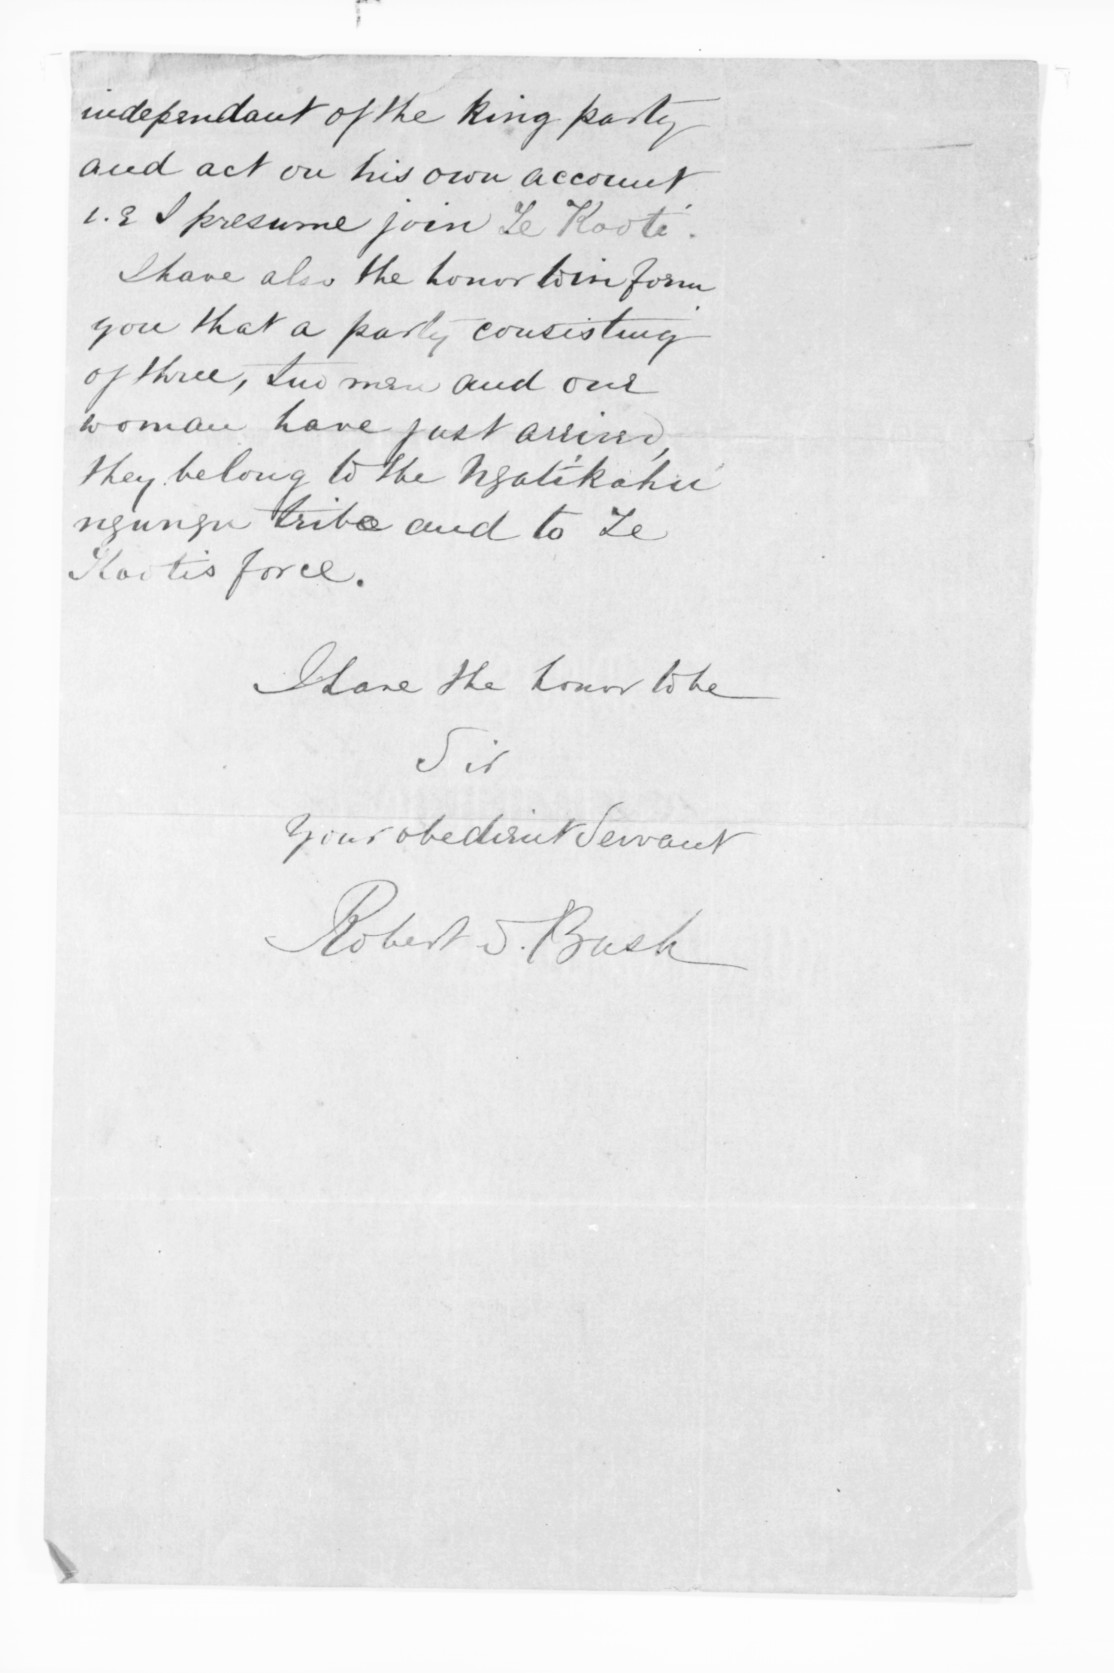 independant of the King party
and act on his own account
i.e I presume join Te Kooti.
I have also the honor to inform
you that a party consisting
of three, two men and one
woman have just arrived,
they belong to the Ngatikahu
ngungu tribe and to Te
Kootis force.
I have the honor to be
Sir
Your obedient Servant
Robert S. Bush